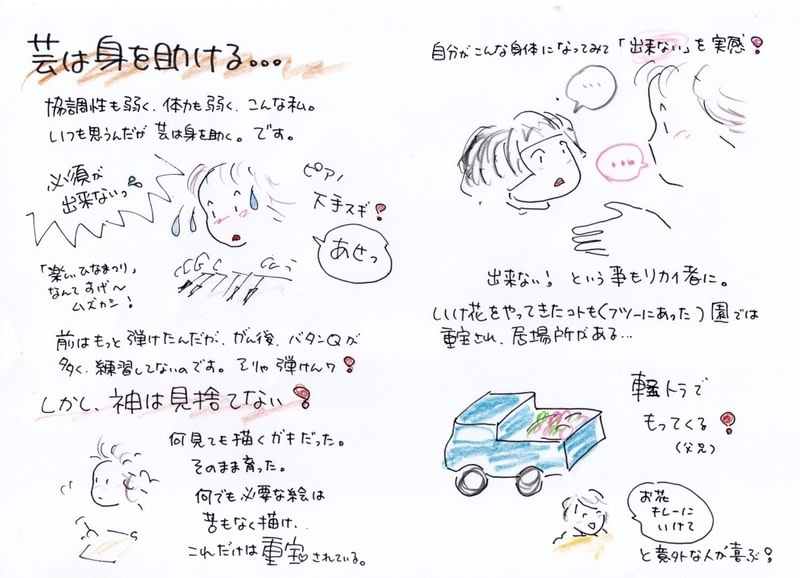 芸は身を助ける...
協調性も弱く、体力も弱く、こんな私。
いつも思うんだが 芸は身を助く。です。
必須が
出来ないっ
ピアノ
大手スギ!
あせっ
「楽しいひなまつり」
なんてすげ〜
ムズカシ!
前はもっと弾けたんだが、がん後、バタンQが
多く、練習してないのです。そりゃ弾けんワ!
しかし、神は見捨てない!
何見ても描くガキだった。
そのまま育った。
何でも必要な絵は
苦もなく描け、
これだけは重宝されている。
自分がこんな身体になってみて「出来ない」を実感!
...
...
出来ない! という事もリカイ者に。
いけ花をやってきたコトも(フツーにあった)園では
重宝され、居場所がある...
軽トラで
もってくる!
(父兄)
お花
キレーに
いけて
と意外な人が喜ぶ!